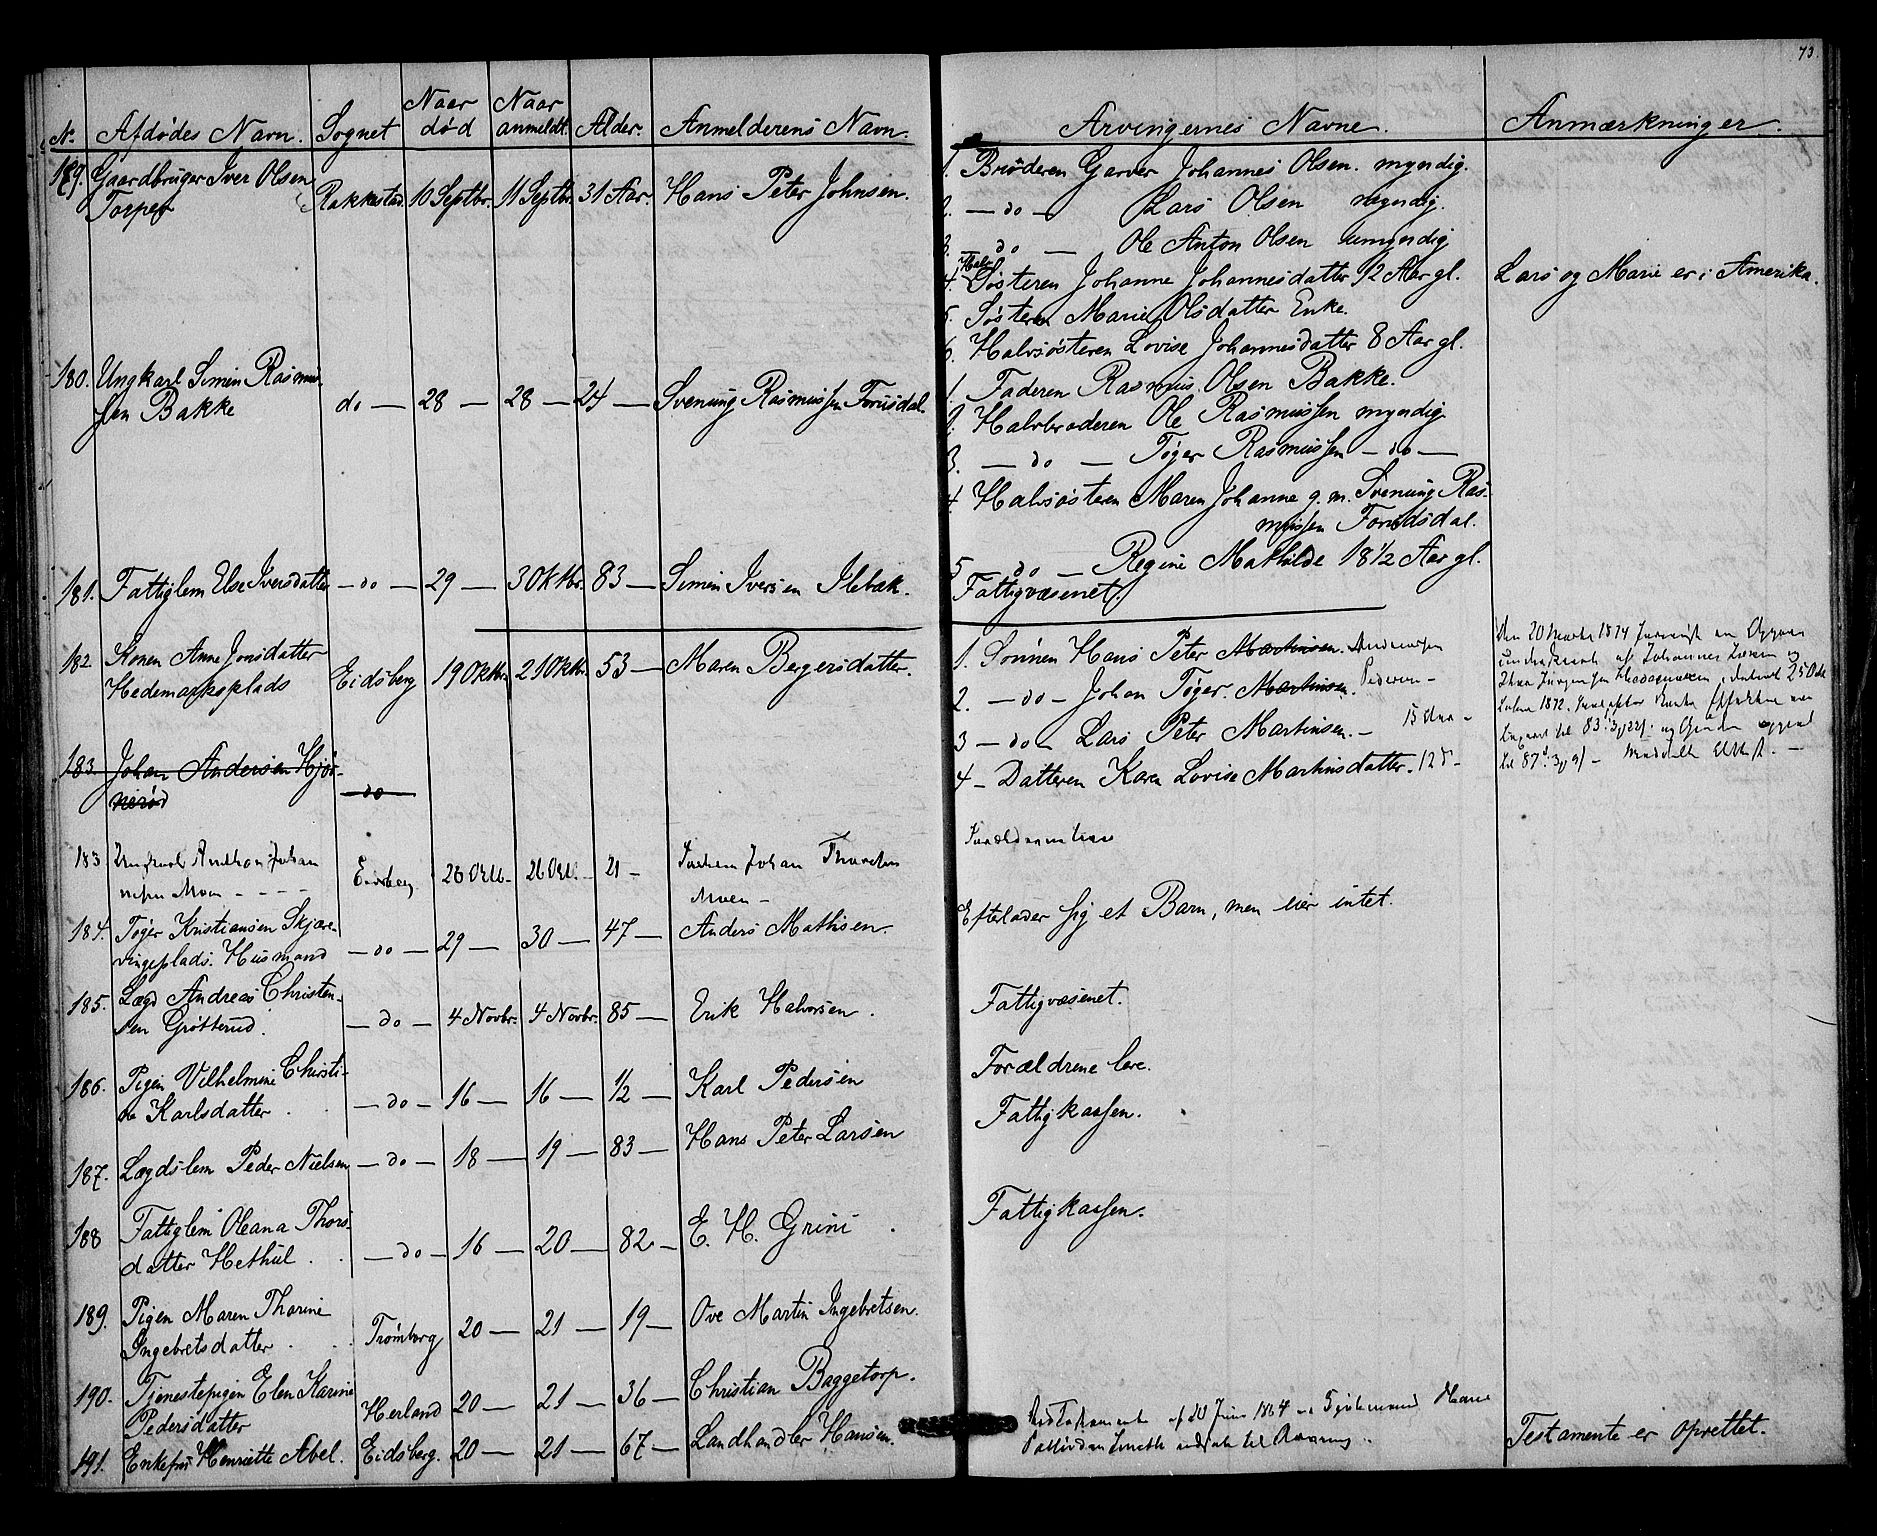 73.
No. Afdødes Navn. Sognet Naar død Naar anmeldt. Alder. Anmelderens Navn. Arvingernes Navne. Anmærkninger.
179. Gaardbruger Iver Olsen
Torper Rakkestad. 10 Septbr. 11 Septbr. 31 Aar. Hans Peter Johnsen.
1. Broderen Garver Johannes Olsen. myndig.
2. — do — Lars Olsen myndig.
3. — do — Ole Anton Olsen umyndig
4. Halv Søsteren Johanne Johannesdatter 12 Aar gl. Lars og Marie er i Amerika.
5. Søsteren Marie Olsdatter Enke.
6. Halvsøsteren Lovise Johannesdatter 8 Aar gl.
180. Ungkarl Simen Rasmus-
sen Bakke do — 28 — 28 — 24 — Svenung Rasmussen Forusdal.
1. Faderen Rasmus Olsen Bakke.
2. Halvbroderen Ole Rasmussen myndig
3. — do — Tøger Rasmussen — do —
4. Halvsøsteren Maren Johanne g. m. Svenung Ras-
mussen Forudsdal.
5 do — Regine Mathilde 18 1/2 Aar gl.
181. Fattiglem Else Iversdatter — do — 29 — 3 Oktbr. 83 — Simen Iversen Ilebak.
Fattigvæsenet.
182. Konen Anne Jonsdatter
Hedemarksplads Eidsberg 19 Oktbr. 21 Oktbr. 53 — Maren Bergersdatter.
1. Sønnen Hans Peter Martinsen. Andersen
2. — do — Johan Tøger Martinsen. Pedersen —
3 — do — Lars Peter Martinsen. — 15
4 — Datteren Karen Lovise Martinsdatter. 12
Den 20 Marts 1874
af Johannes
250
1872.
til 83
til 87
183. Johan Andersen Hjør-
nerød — do —
183 Ungkarl Anthon Johan
nesen Moen — — — Eidsberg 26 Oktb. 26 Okt. 21 — Faderen Johan Thorsten
Moen —
Forældrene
184. Tøger Kristiansen Skjøre-
vingeplads. Husmand — do — 29 — 30 — 47 — Anders Mathisen.
Efterlader sig et Barn, men eier intet.
185. Lægd Andreas Christen-
sen Grøtterud. — do — 4 Novbr. 4 Novbr. 85 — Erik Halvorsen.
Fattigvæsenet.
186. Pigen Vilhelmine Christi-
ne Karlsdatter — do — 16 — 16 — 1/2 — Karl Pedersen
Forældrene leve.
187. Lægdslem Peder Nielsen — do — 18 — 19 — 83 — Hans Peter Larsen
Fattigkassen.
188 Fattiglem Oleana Thors-
datter Hethul — do — 16 — 20 — 82 — E. H. Grini
Fattigkassen.
189. Pigen Maren Thorine
Ingebretsdatter Trømborg 20 — 21 — 19 — Ove Martin Ingebretsen.
190. Tjenestepigen Elen Karine
Pedersdatter Herland 20 — 21 — 36 — Christian Baggetorp.
191. Enkefru Henriette Abel. Eidsberg. 20 — 21 — 67 — Landhandler Hansen.
Testamente af 20 Juni 1864
Testamente er oprettet.